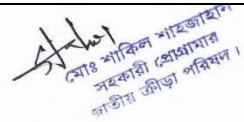 মোঃ শাকিল শাহজাহান
সহকারী প্রোগ্রামার
জাতীয় ক্রীড়া পরিষদ।